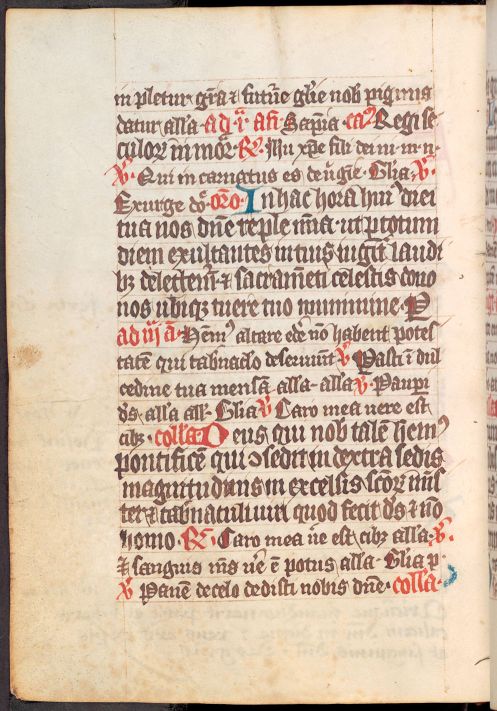 inpletur gr̄a ⁊ future gl̄ie nob pignus
datur all'a · ad · i · añ · Sapīa · ca⁹ Regi se
culor̄ inmor̄ · R̄ · Jh̄u xp̄e fili dei ui · m · n ·
V̄ · Qui incarnatus es de uīgie · Gl̄ia · V̄ ·
Exurge dō · oro · In hac hora hui⁹ diei
tua nos dn̄e reple mīa · ut p totum
diem exultantes in tuis iugit̄ laudi
bꝫ delectem̄ · ⁊ sacramēti celestis dono
nos ubiqꝫ tuere tuo munimine · P
ad iij a · Hem⁹ altare edē nō habent potes
tatē qui tabnaclo deseruiūt V̄ · Pasti ī dul
cedine tua mensā all'a · all'a V̄ · Paupi
ds̄ all'a all' · Gl̄ia V̄ Caro mea uere est
cibꝫ · coll'a Deus qui nob talē hem⁹
pontificē qui ꝯsedit in dextra sedis
magnitudinis in excelsis scōr̄ mīs
ter ⁊ tabnaculum quod fecit ds̄ ⁊ nō
homo · R̄ · Caro mea ūe est cibꝫ all'a · V̄ ·
⁊ sanguis m̄s ūe ē potus all'a · Gl̄ia p ·
V̄ Panē de celo dedisti nobis dn̄e · coll'a ·